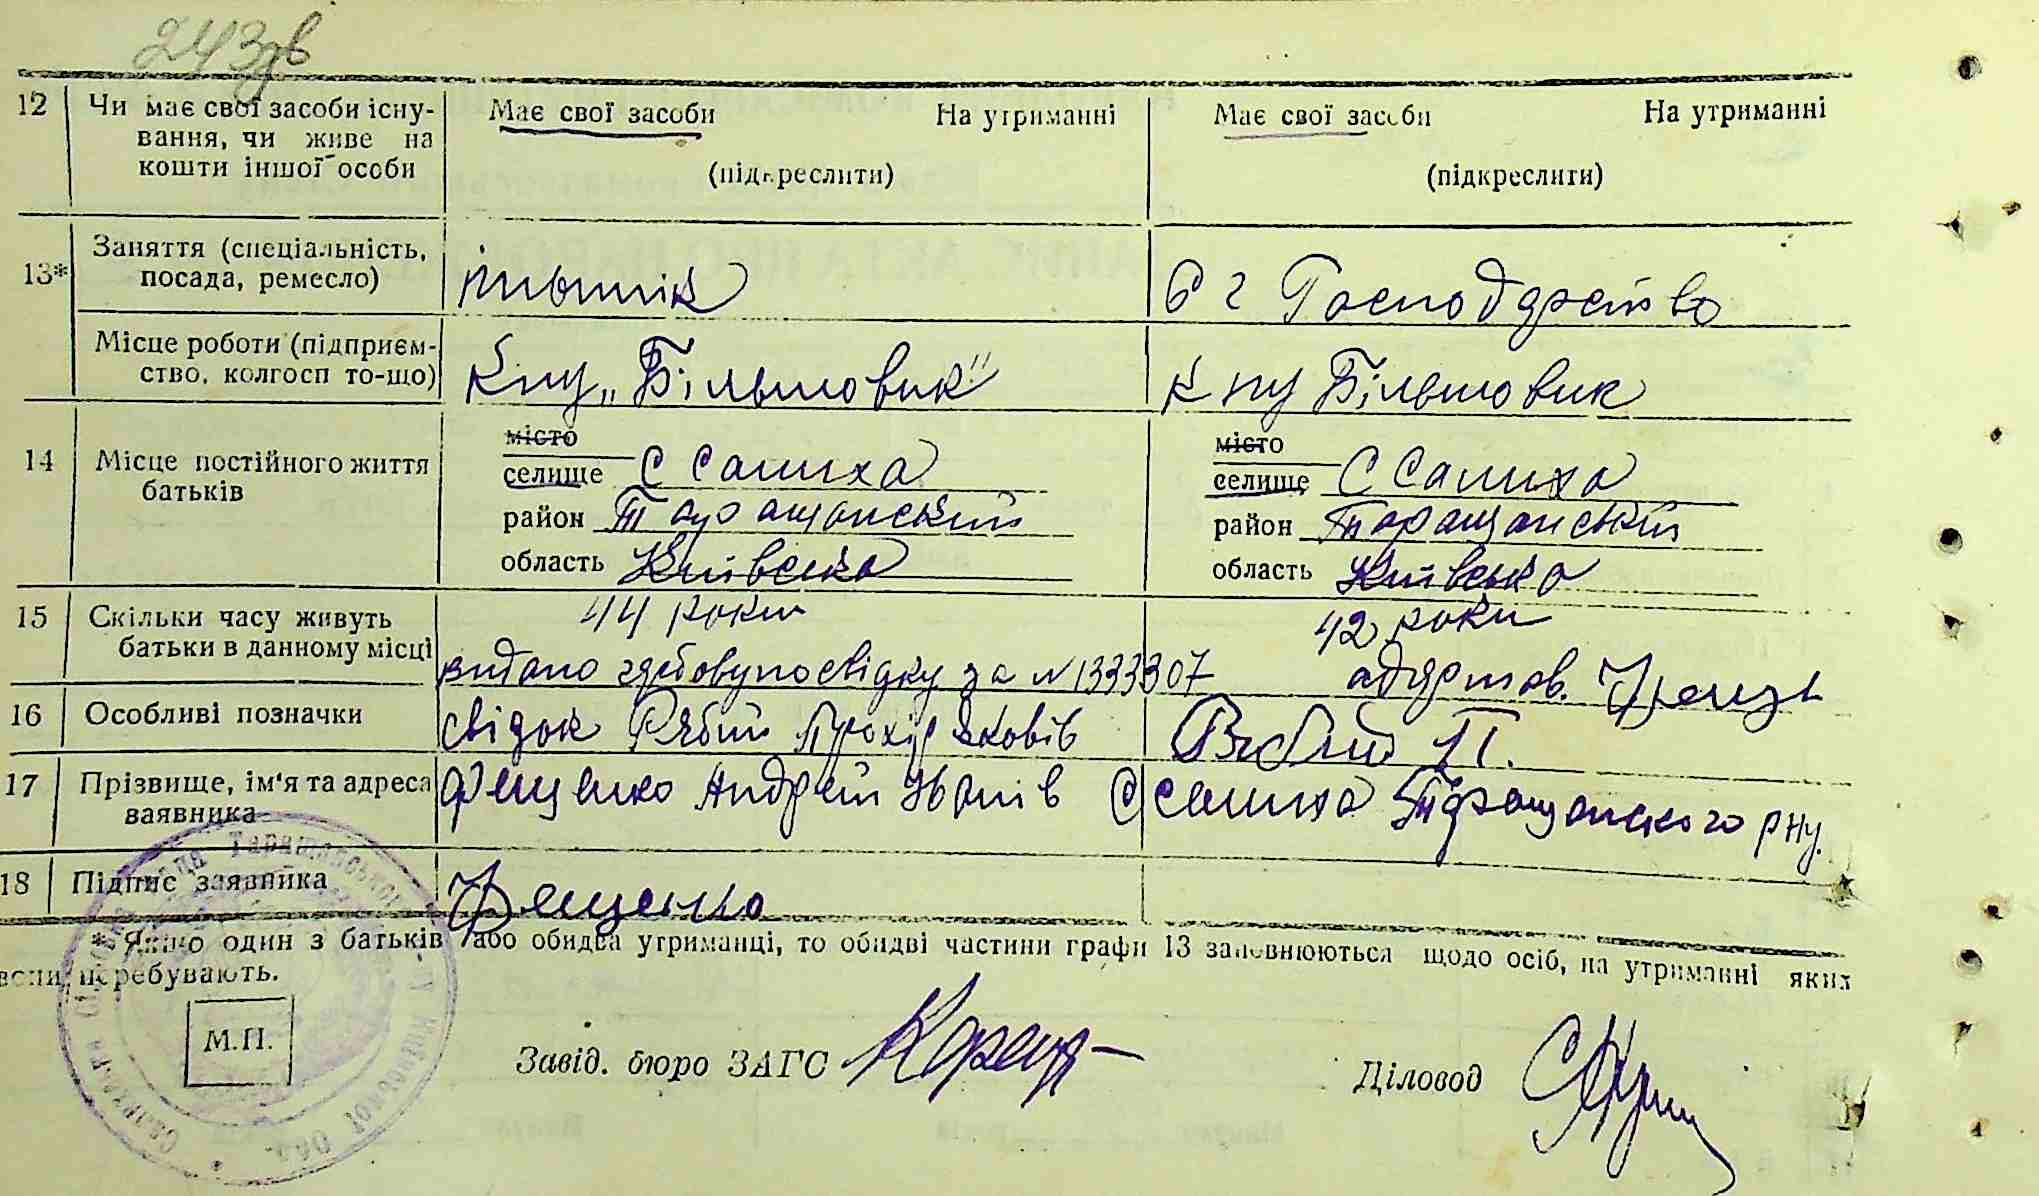 243 зв
12 Чи має свої засоби існу- Має свої засоби На утриманні Має свої засоби На утриманні
вання, чи живе на
кошти іншої особи (підкреслити) (підкреслити)
13* Заняття (спеціальність, посада, ремесло) Господарство
Місце роботи (підприєм-
ство, колгосп то-що) "Більшовик" Більшовик
місто місто
14 Місце постійного життя селище С Салиха селище С Салиха
батьків район Таращанский район Таращанський
область Київска область Київська
15 Скільки часу живуть 44 роки 42 роки
батьки в данному місці видано за № 1333307
16 Особливі позначки свідок Рябий Прохір Яковів Рябий П.
17 Прізвище, ім'я та адреса Фещенко Андрей Иванів С Салиха Таращанского рну.
заявника
18 Підпис заявника Фещенко
* Якщо один з батьків або обидва утриманці, то обидві частини графи 13 заповнюються щодо осіб, на утриманні яких
вони перебувають.
М.П.
Завід. бюро ЗАГС
Діловод